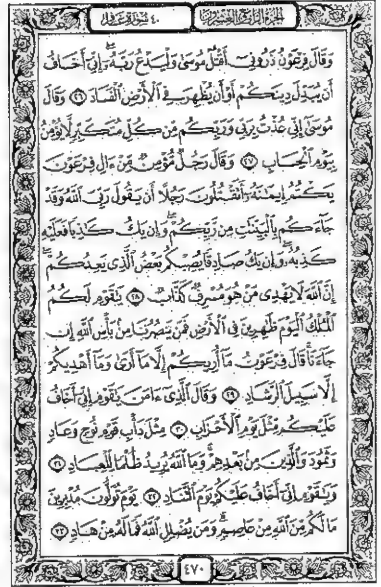 الجزء الرابع والعشرون ٤٠ سورة غافر
وَقَالَ فِرْعَوْنُ ذَرُونِىٓ أَقْتُلْ مُوسَىٰ وَلْيَدْعُ رَبَّهُۥٓ إِنِّىٓ أَخَافُ
أَن يُبَدِّلَ دِينَكُمْ أَوْ أَن يُظْهِرَ فِى ٱلْأَرْضِ ٱلْفَسَادَ ۝٢٦ وَقَالَ
مُوسَىٰٓ إِنِّى عُذْتُ بِرَبِّى وَرَبِّكُم مِّن كُلِّ مُتَكَبِّرٍ لَّا يُؤْمِنُ
بِيَوْمِ ٱلْحِسَابِ ۝٢٧ وَقَالَ رَجُلٌ مُّؤْمِنٌ مِّنْ ءَالِ فِرْعَوْنَ
يَكْتُمُ إِيمَـٰنَهُۥٓ أَتَقْتُلُونَ رَجُلًا أَن يَقُولَ رَبِّىَ ٱللَّهُ وَقَدْ
جَآءَكُم بِٱلْبَيِّنَـٰتِ مِن رَّبِّكُمْ ۖ وَإِن يَكُ كَـٰذِبًا فَعَلَيْهِ
كَذِبُهُۥ ۖ وَإِن يَكُ صَادِقًا يُصِبْكُم بَعْضُ ٱلَّذِى يَعِدُكُمْ ۖ
إِنَّ ٱللَّهَ لَا يَهْدِى مَنْ هُوَ مُسْرِفٌ كَذَّابٌ ۝٢٨ يَـٰقَوْمِ لَكُمُ
ٱلْمُلْكُ ٱلْيَوْمَ ظَـٰهِرِينَ فِى ٱلْأَرْضِ فَمَن يَنصُرُنَا مِنۢ بَأْسِ ٱللَّهِ إِن
جَآءَنَا ۚ قَالَ فِرْعَوْنُ مَآ أُرِيكُمْ إِلَّا مَآ أَرَىٰ وَمَآ أَهْدِيكُمْ
إِلَّا سَبِيلَ ٱلرَّشَادِ ۝٢٩ وَقَالَ ٱلَّذِىٓ ءَامَنَ يَـٰقَوْمِ إِنِّىٓ أَخَافُ
عَلَيْكُم مِّثْلَ يَوْمِ ٱلْأَحْزَابِ ۝٣٠ مِثْلَ دَأْبِ قَوْمِ نُوحٍ وَعَادٍ
وَثَمُودَ وَٱلَّذِينَ مِنۢ بَعْدِهِمْ ۚ وَمَا ٱللَّهُ يُرِيدُ ظُلْمًا لِّلْعِبَادِ ۝٣١
وَيَـٰقَوْمِ إِنِّىٓ أَخَافُ عَلَيْكُمْ يَوْمَ ٱلتَّنَادِ ۝٣٢ يَوْمَ تُوَلُّونَ مُدْبِرِينَ
مَا لَكُم مِّنَ ٱللَّهِ مِنْ عَاصِمٍ ۗ وَمَن يُضْلِلِ ٱللَّهُ فَمَا لَهُۥ مِنْ هَادٍ ۝٣٣
٤٧٠